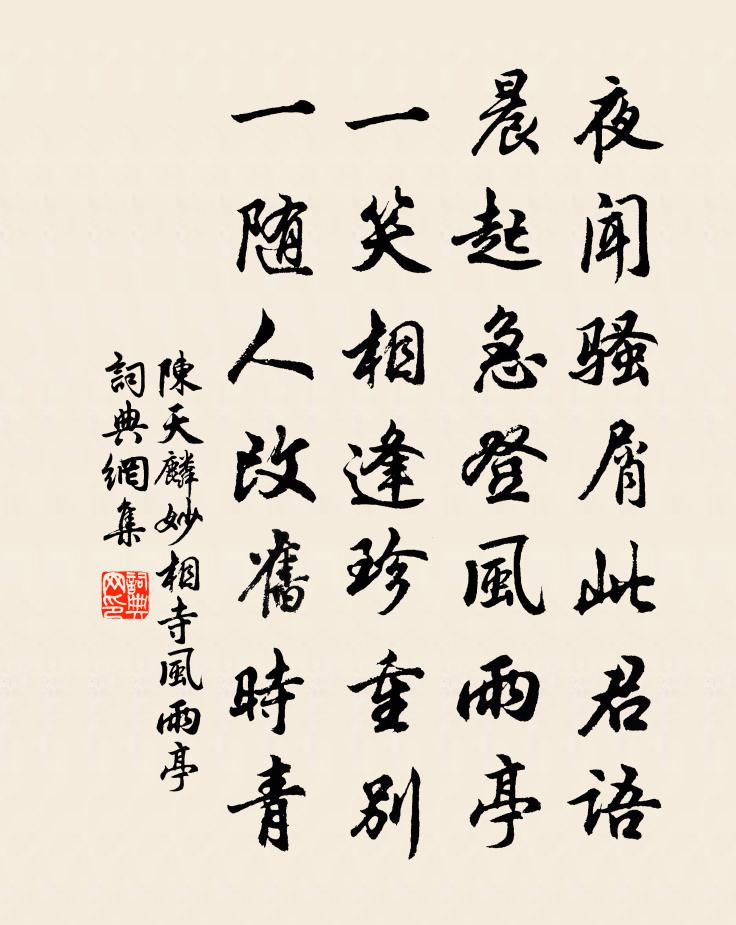 夜闻骚屑此君语
晨起急登風雨亭
一笑相逢珍重别
一随人改舊時青
陳天麟妙相寺風雨亭
詞典網集
詞典
网印